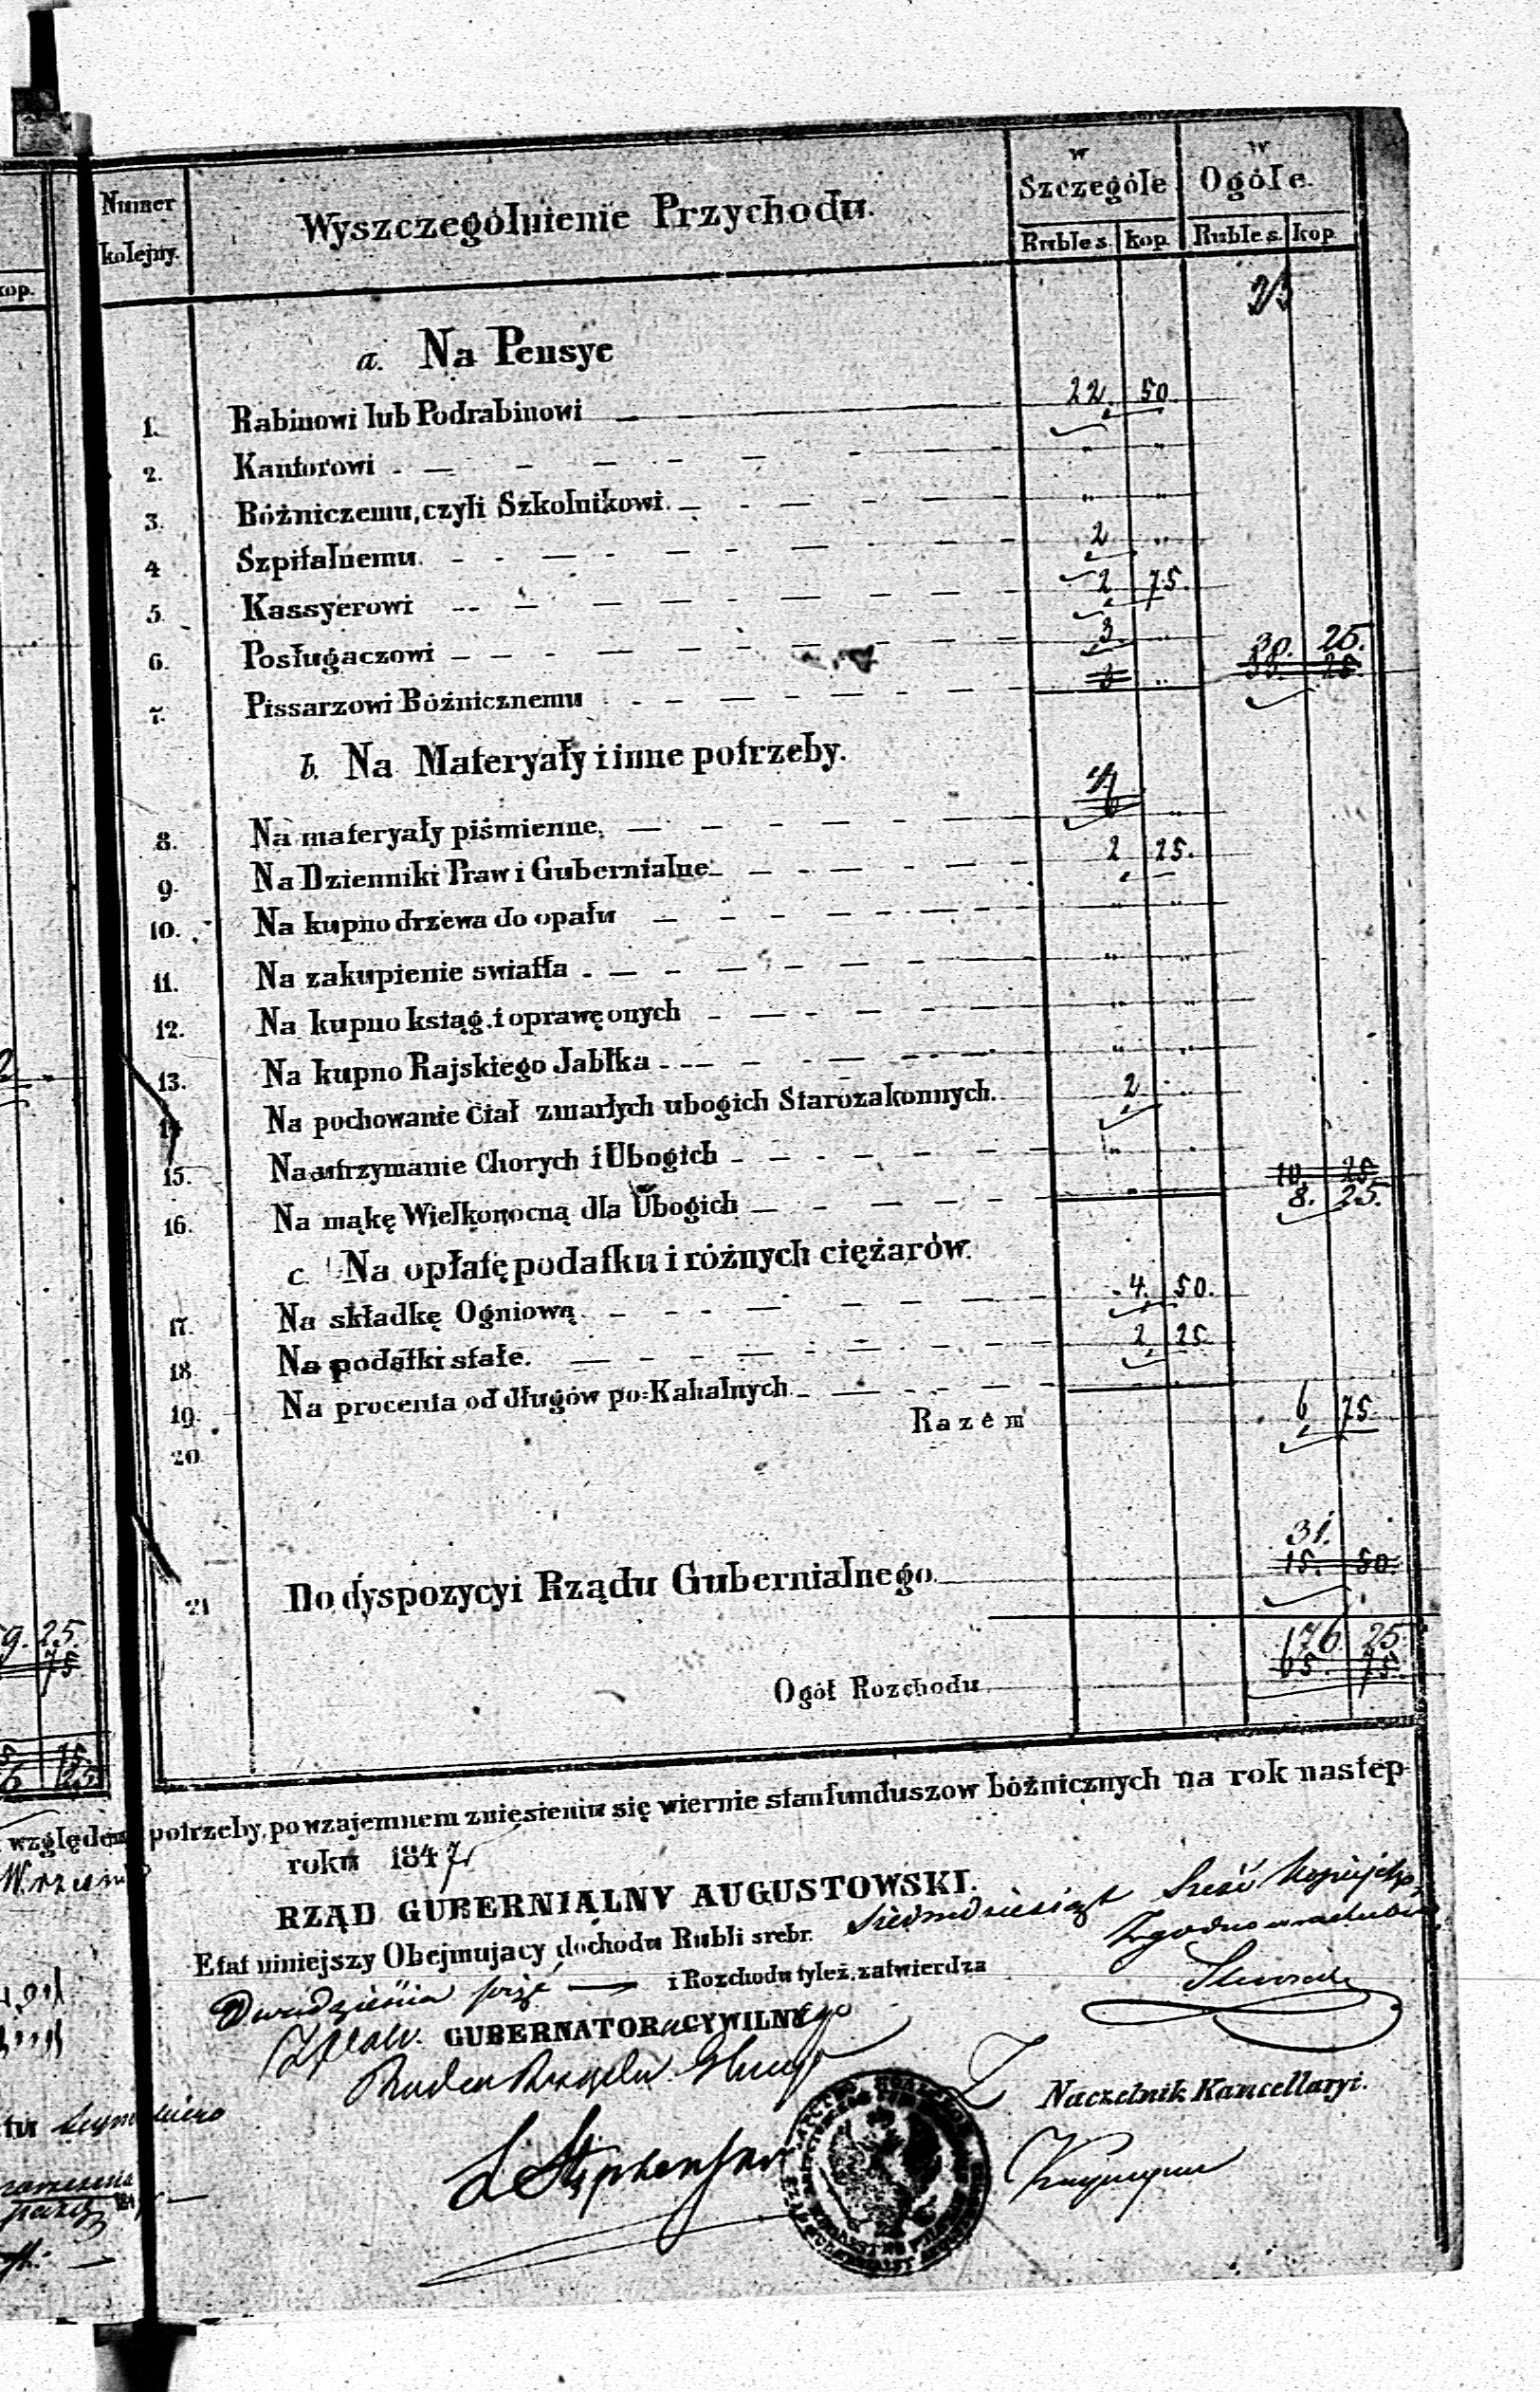 Numer kolejny.
Wyszczególnienie Przychodu.
w Szczególe
w Ogóle.
Rubles. kop. Rubles. kop.
kop.
a. Na Pensye
1. Rabinowi lub Podrabinowi 22. 50.
2. Kantorowi " "
3. Bóżniczemu, czyli Szkolnikowi. " "
4 Szpitalnemu. 2 "
5. Kassyerowi 2 75.
6. Posługaczowi 3. "
7. Pissarzowi Bóżnicznemu 3 " 33. 25.
38. 25.
b. Na Materyały i inne potrzeby.
8. Na materyały piśmienne. 4 "
9. Na Dzienniki Praw i Gubernialne 2 25.
10. Na kupno drzewa do opału " "
11. Na zakupienie swiatła " "
12. Na kupno ksiąg i oprawę onych " "
13. Na kupno Rajskiego Jabłka " "
14 Na pochowanie Ciał zmarłych ubogich Starozakonnych. 2 "
15. Na utrzymanie Chorych i Ubogich "
16. Na mąkę Wielkonocną dla Ubogich " 10. 25.
8. 25.
c. Na opłatę podatku i różnych ciężarów.
17. Na składkę Ogniową 4. 50.
18 Na podatki stałe. 2 25.
19. Na procenta od długów po=Kahalnych
20. Razem 6 75.
31.
21 Do dyspozycyi Rządu Gubernialnego 15. 50.
176. 25
Ogół Rozchodu 65. 75.
9. 25.
75.
względem potrzeby, po wzajemnem zniesieniu się wiernie stan funduszow bóżnicznych na rok nastep-
roku 1847r
RZĄD GUBERNIALNY AUGUSTOWSKI.
Etat niniejszy Obejmujacy dochodu Rubli srebr. Siedmdziesiąt Sześć Kopiejek
Dwadzieścia pięć i Rozchodu tyleż, zatwierdza
GUBERNATORA CYWILNEgo
Radca Rządu
Naczelnik Kancellaryi.